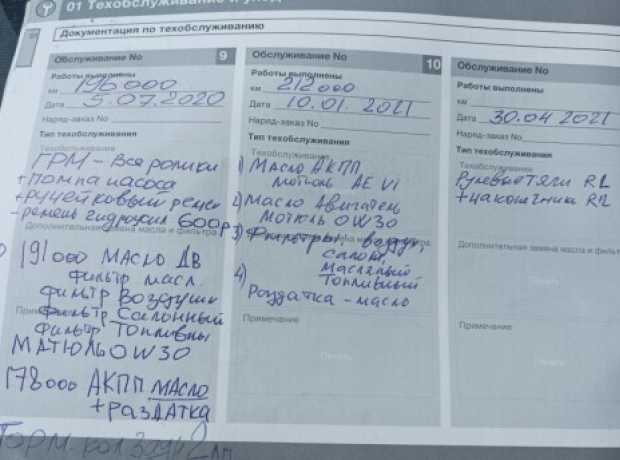 01 Техобслуживание и уход
Документация по техобслуживанию
Обслуживание No 9
Работы выполнены
км 196000
Дата 5.07.2020
Наряд-заказ No
Тип техобслуживания
Техобслуживание
ГРМ - Все ролики
+ помпа насоса
+ ручейковый ремен
- ремень гидроусил 600р
Дополнительная замена масла и фильтра
191000 МАСЛО ДВ
фильтр масл.
фильтр Воздушн
Фильтр Салонный
фильтр Топливны
МАТЮЛЬ 0W30
178000 АКПП МАСЛО
+ РАЗДАТКА
ТОРМ. КОЛ
Обслуживание No 10
Работы выполнены
км 212000
Дата 10.01.2021
Наряд-заказ No
Тип техобслуживания
Техобслуживание
1) Масло АКПП
мотюль АЕ VI
2) Масло Двигатель
Мотюль 0W30
3) Фильтры воздух,
салон,
Масляный
Топливный
4) Раздатка - масло
Примечание
Печать
Обслуживание No
Работы выполнены
км
Дата 30.04 2021
Наряд-заказ No
Тип техобслуживания
Техобслуживание
Рулевые Тяги RL
+ наконечники RL
Дополнительная замена масла и фильт
Примечание
Печать